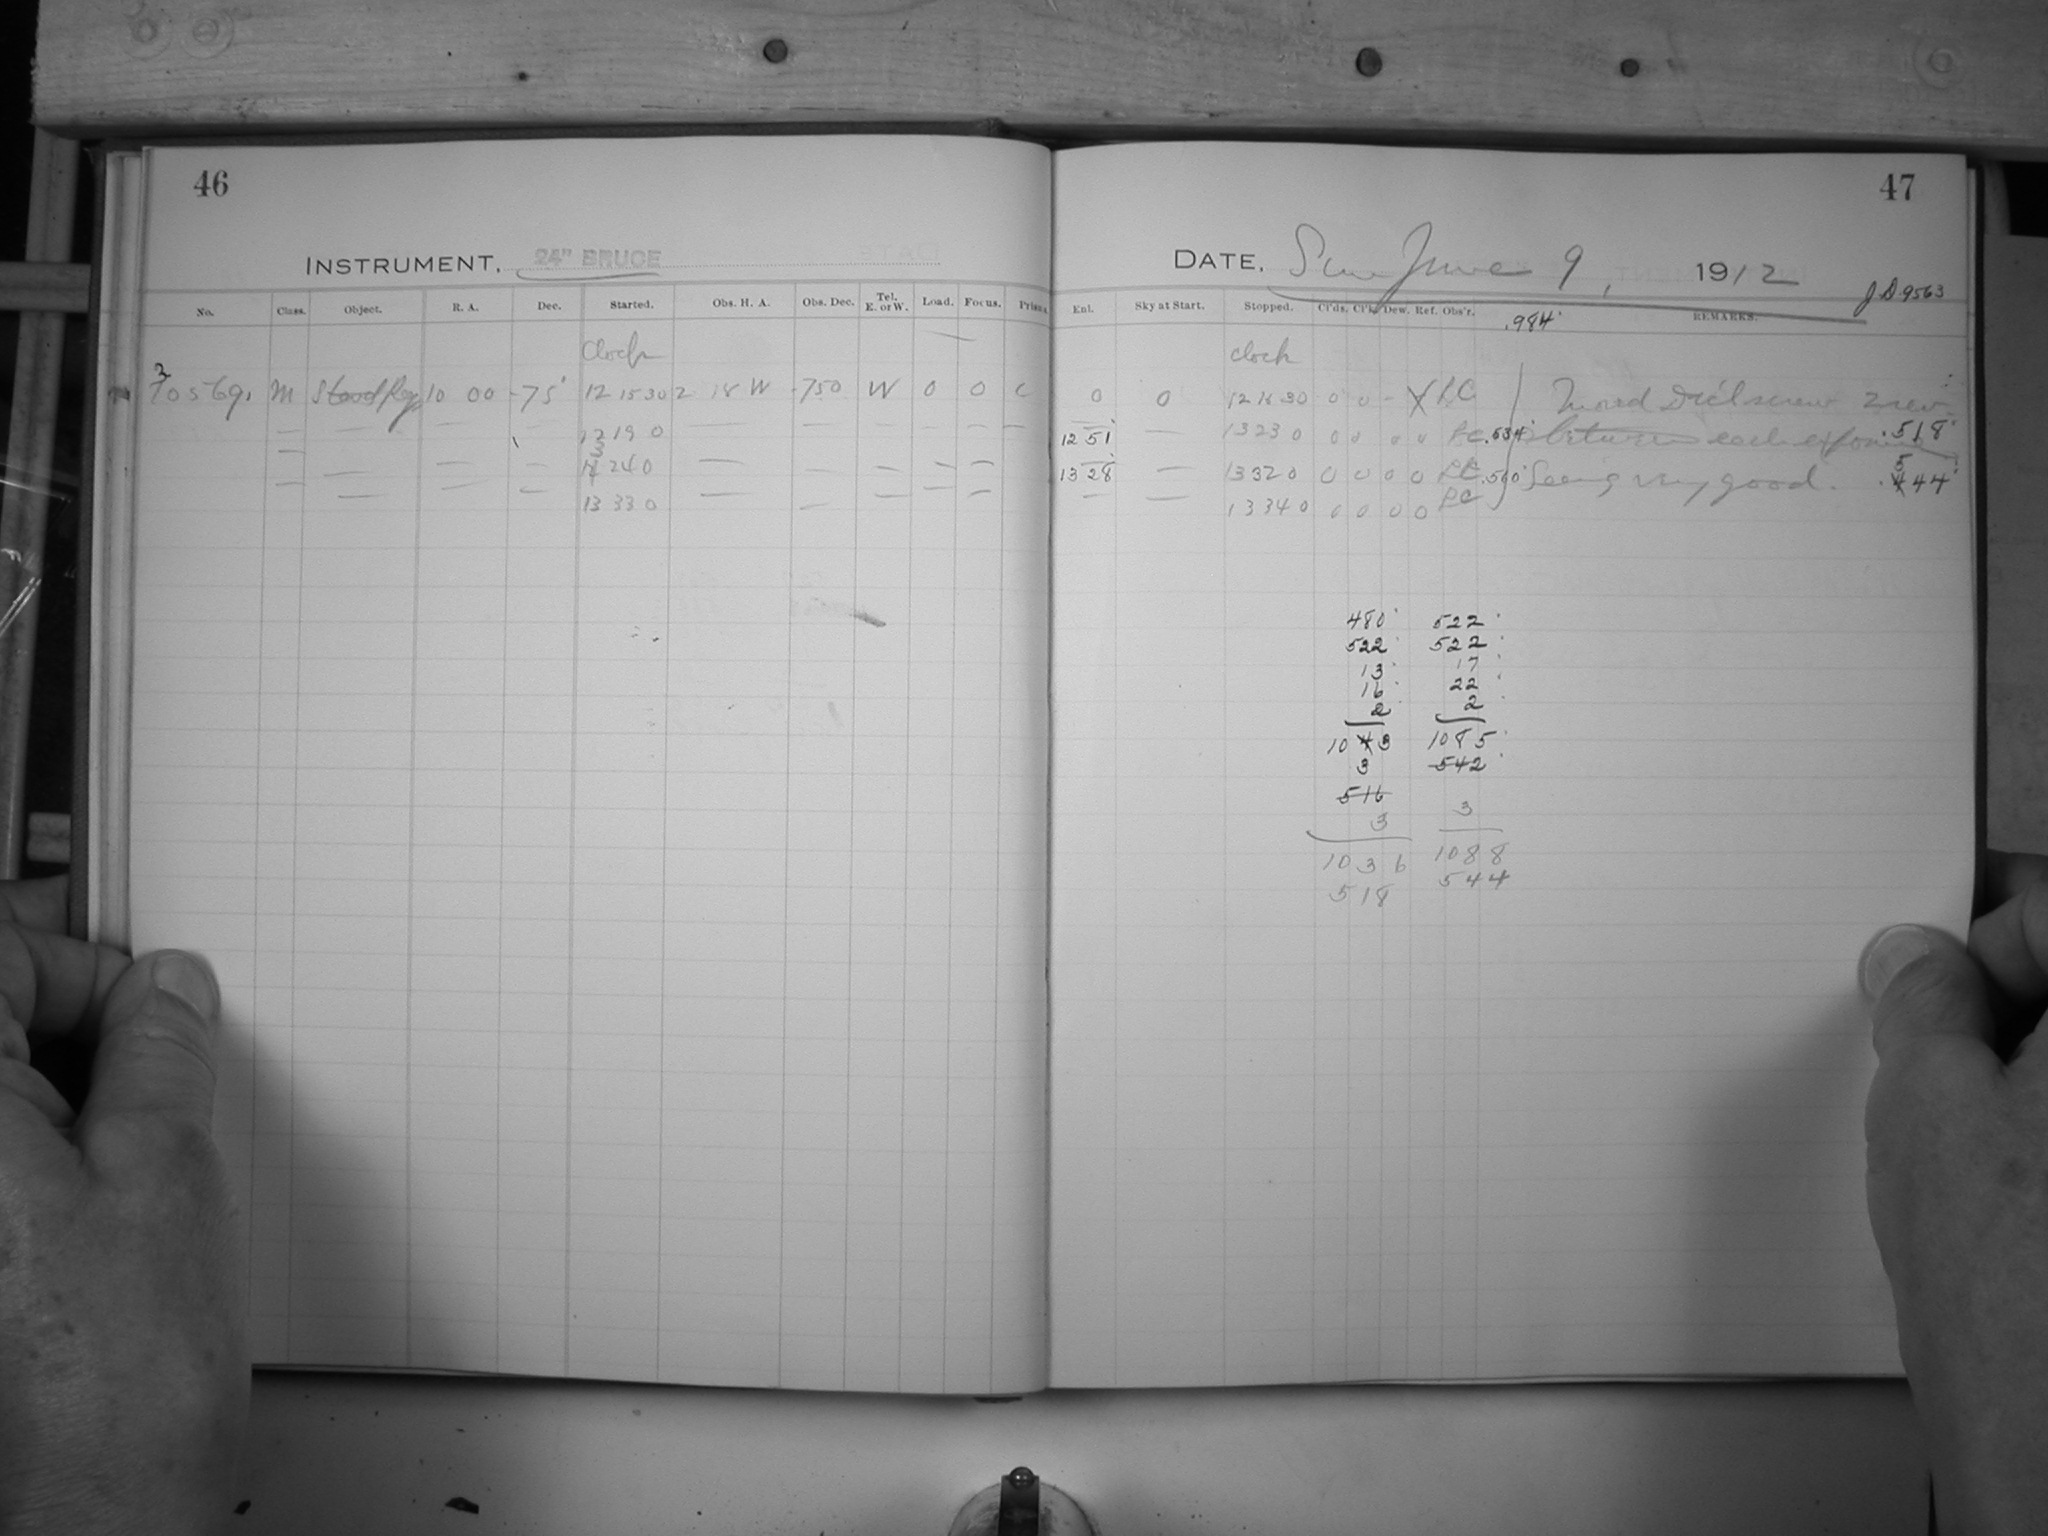 46
INSTRUMENT, 24" BRUCE
No. Class. Object. R. A. Dec. Started. Obs. H. A. Obs. Dec. Tel. E. or W. Load. Focus. Prism.
Clock
10 00 -75 12 15 30 2 18 W -750 W 0 0 C
12 19 0
24 0
13 33 0
47
DATE, Sun June 9, 1912
J.D. 9563
Enl. Sky at Start. Stopped. Cl'ds. Cl'k. Dew. Ref. Obs'r. REMARKS.
.984
clock
0 0 0 0 - LC Moved Decl screw 2 rev
12 51 — 13 23 0 0 0 0 0 .534 between each exposure .518
13 28 — 13 32 0 0 0 0 0 .560 Seeing very good. 44
— — 13 34 0 0 0 0 0
480 522
522 522
13 17
16 22
2 2
10 3 1085
3 542
516
3 3
1036 1088
518 544